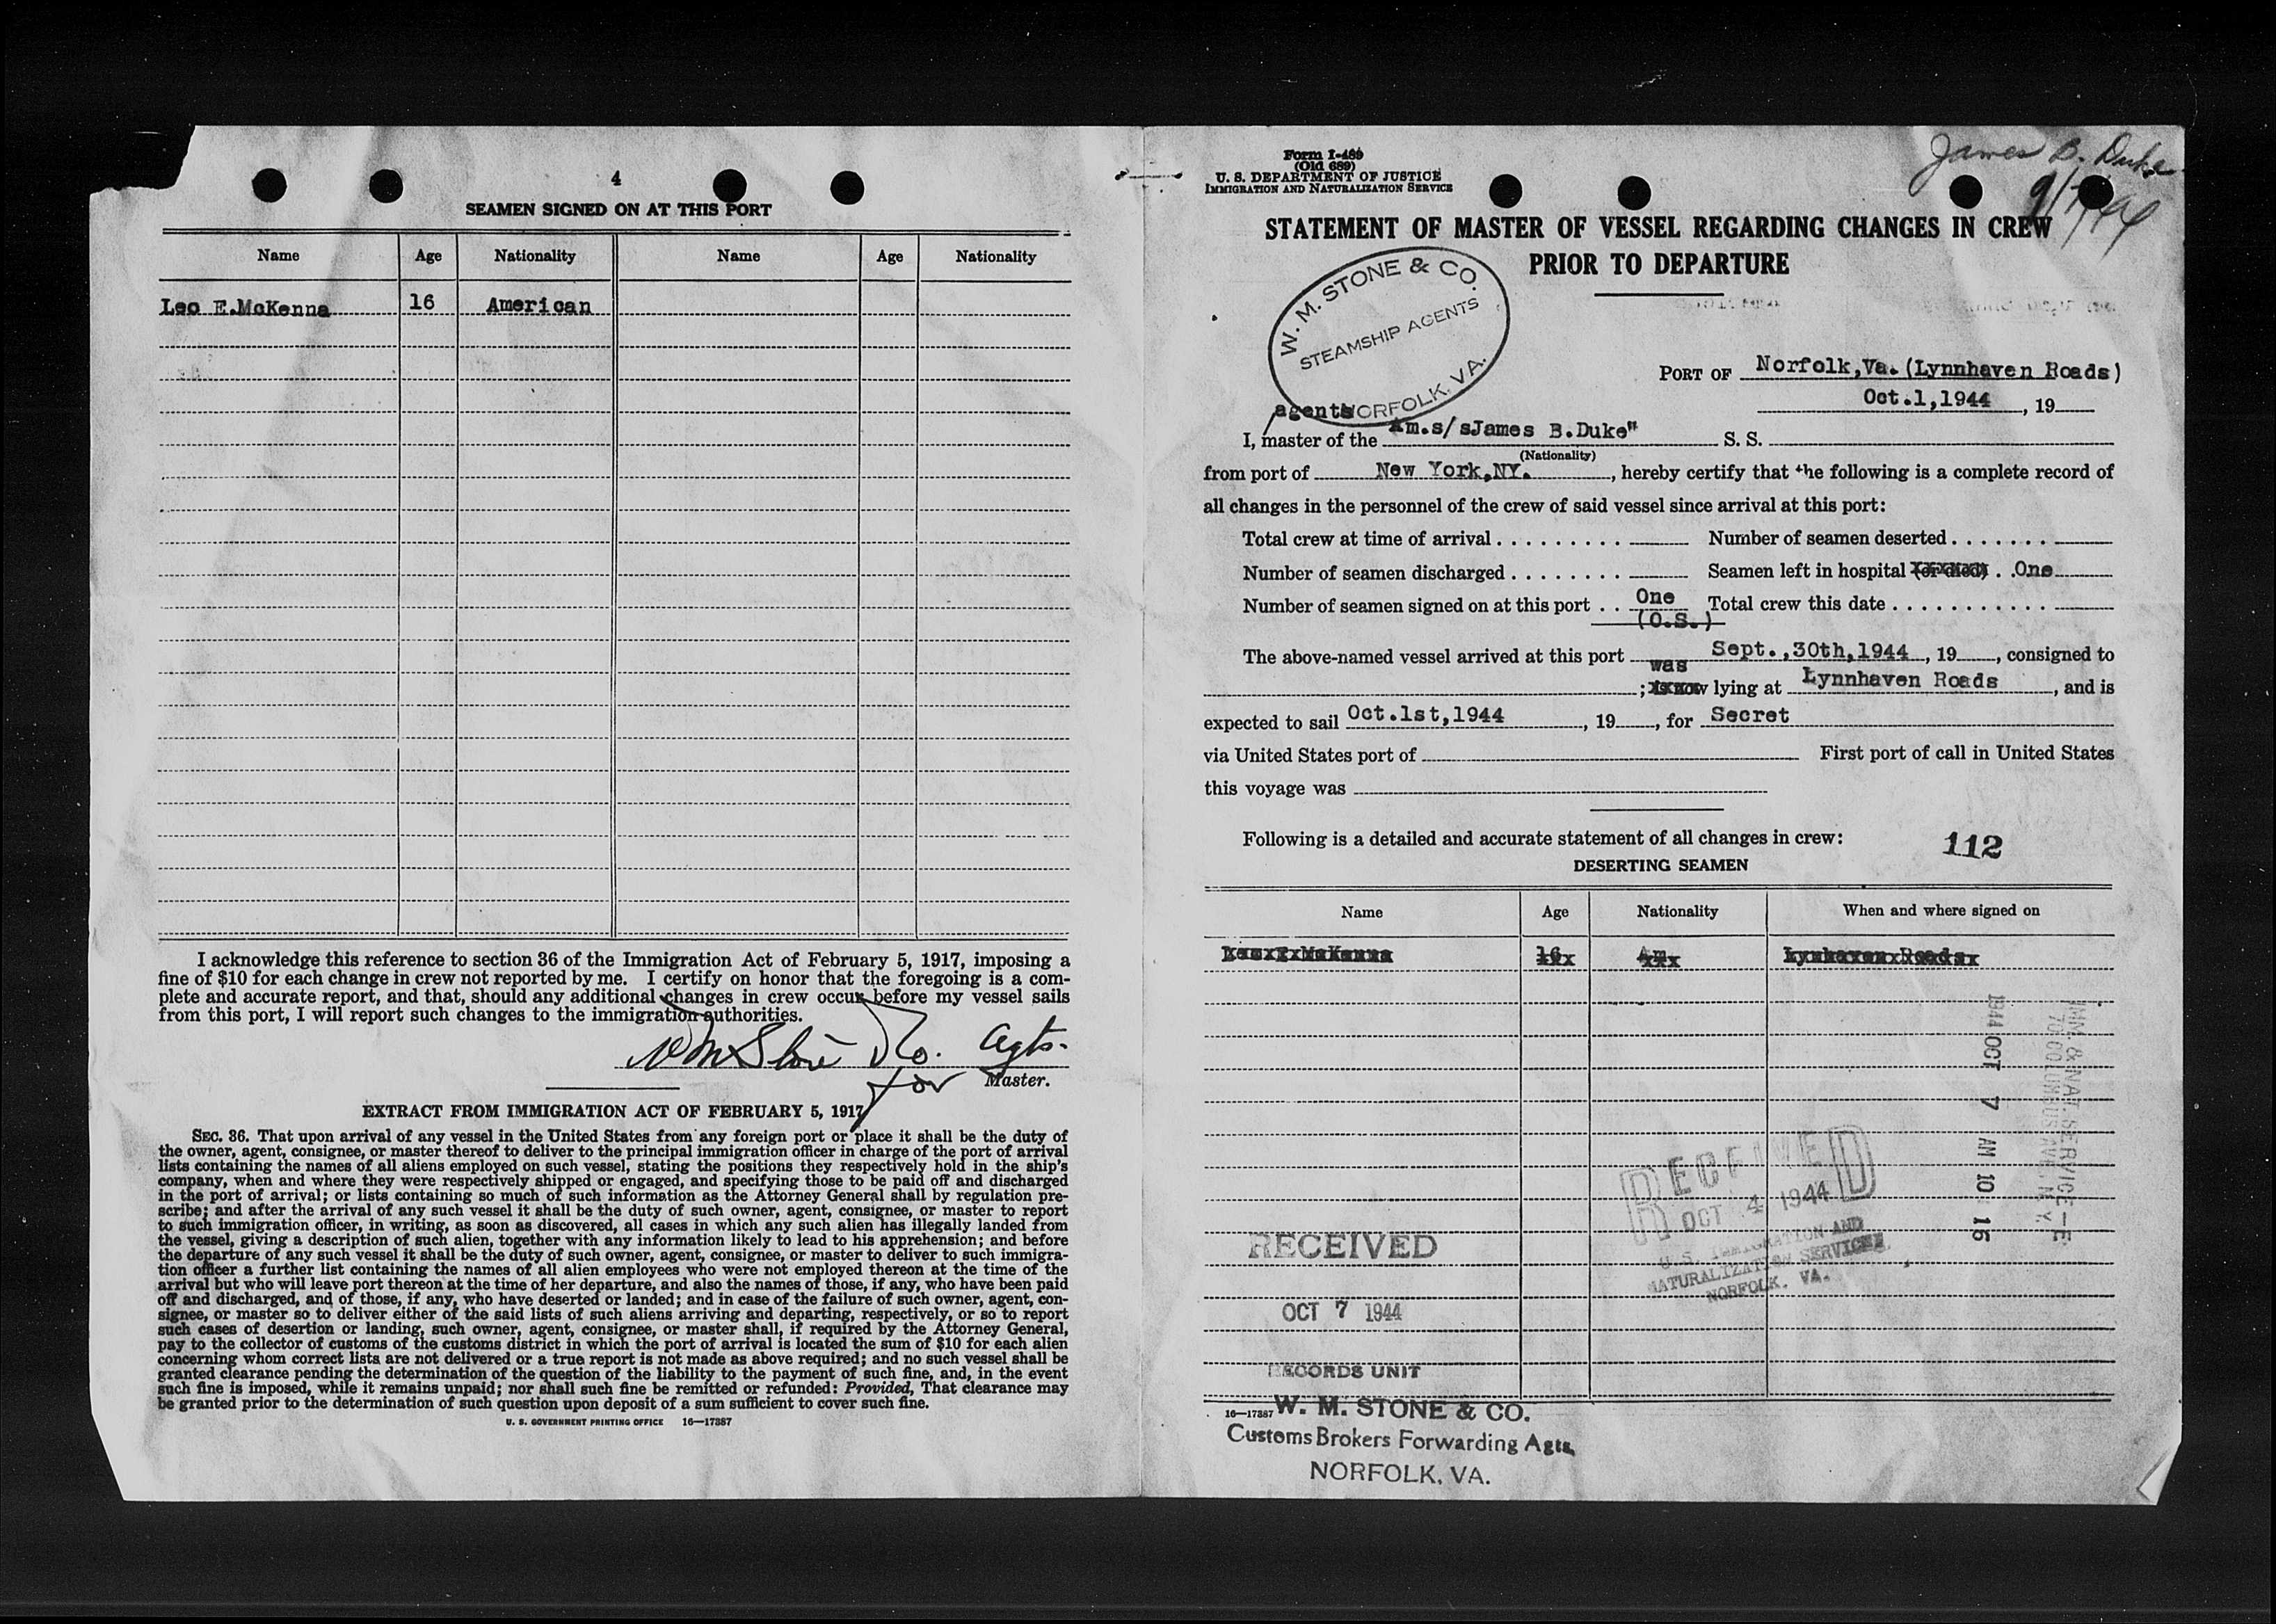 4
SEAMEN SIGNED ON AT THIS PORT
Name Age Nationality Name Age Nationality
Leo E.McKenna 16 American
I acknowledge this reference to section 36 of the Immigration Act of February 5, 1917, imposing a
fine of $10 for each change in crew not reported by me. I certify on honor that the foregoing is a com-
plete and accurate report, and that, should any additional changes in crew occur before my vessel sails
from this port, I will report such changes to the immigration authorities.
WM Stone & Co. Agts.
for Master.
EXTRACT FROM IMMIGRATION ACT OF FEBRUARY 5, 1917
SEC. 36. That upon arrival of any vessel in the United States from any foreign port or place it shall be the duty of
the owner, agent, consignee, or master thereof to deliver to the principal immigration officer in charge of the port of arrival
lists containing the names of all aliens employed on such vessel, stating the positions they respectively hold in the ship's
company, when and where they were respectively shipped or engaged, and specifying those to be paid off and discharged
in the port of arrival; or lists containing so much of such information as the Attorney General shall by regulation pre-
scribe; and after the arrival of any such vessel it shall be the duty of such owner, agent, consignee, or master to report
to such immigration officer, in writing, as soon as discovered, all cases in which any such alien has illegally landed from
the vessel, giving a description of such alien, together with any information likely to lead to his apprehension; and before
the departure of any such vessel it shall be the duty of such owner, agent, consignee, or master to deliver to such immigra-
tion officer a further list containing the names of all alien employees who were not employed thereon at the time of the
arrival but who will leave port thereon at the time of her departure, and also the names of those, if any, who have been paid
off and discharged, and of those, if any, who have deserted or landed; and in case of the failure of such owner, agent, con-
signee, or master so to deliver either of the said lists of such aliens arriving and departing, respectively, or so to report
such cases of desertion or landing, such owner, agent, consignee, or master shall, if required by the Attorney General,
pay to the collector of customs of the customs district in which the port of arrival is located the sum of $10 for each alien
concerning whom correct lists are not delivered or a true report is not made as above required; and no such vessel shall be
granted clearance pending the determination of the question of the liability to the payment of such fine, and, in the event
such fine is imposed, while it remains unpaid; nor shall such fine be remitted or refunded: Provided, That clearance may
be granted prior to the determination of such question upon deposit of a sum sufficient to cover such fine.
U. S. GOVERNMENT PRINTING OFFICE 16—17887
Form I-489
(Old 689)
U. S. DEPARTMENT OF JUSTICE
IMMIGRATION AND NATURALIZATION SERVICE
James B. Duke
STATEMENT OF MASTER OF VESSEL REGARDING CHANGES IN CREW
PRIOR TO DEPARTURE
W. M. STONE & CO.
STEAMSHIP AGENTS
NORFOLK, VA.
PORT OF Norfolk,Va.(Lynnhaven Roads)
Oct.1,1944, 19
agents
I, master of the Am.s/sJames B.Duke" S. S.
(Nationality)
from port of New York,NY., hereby certify that the following is a complete record of
all changes in the personnel of the crew of said vessel since arrival at this port:
Total crew at time of arrival Number of seamen deserted
Number of seamen discharged Seamen left in hospital (or died) One
Number of seamen signed on at this port One Total crew this date
(O.S.)
The above-named vessel arrived at this port Sept.,30th,1944, 19, consigned to
was
; is now lying at Lynnhaven Roads, and is
expected to sail Oct.1st,1944, 19, for Secret
via United States port of First port of call in United States
this voyage was
Following is a detailed and accurate statement of all changes in crew: 112
DESERTING SEAMEN
Name Age Nationality When and where signed on
Leo E McKenna 16 Am Lynnhaven Roads
IMM. & NAT. SERVICE—E.
70 COLUMBUS AVE. N.Y.
1944 OCT 7 AM 10 16
RECEIVED
OCT 4 1944
U.S. IMMIGRATION AND
NATURALIZATION SERVICE
NORFOLK, VA.
RECEIVED
OCT 7 1944
RECORDS UNIT
16—17887 W. M. STONE & CO.
Customs Brokers Forwarding Agts.
NORFOLK, VA.